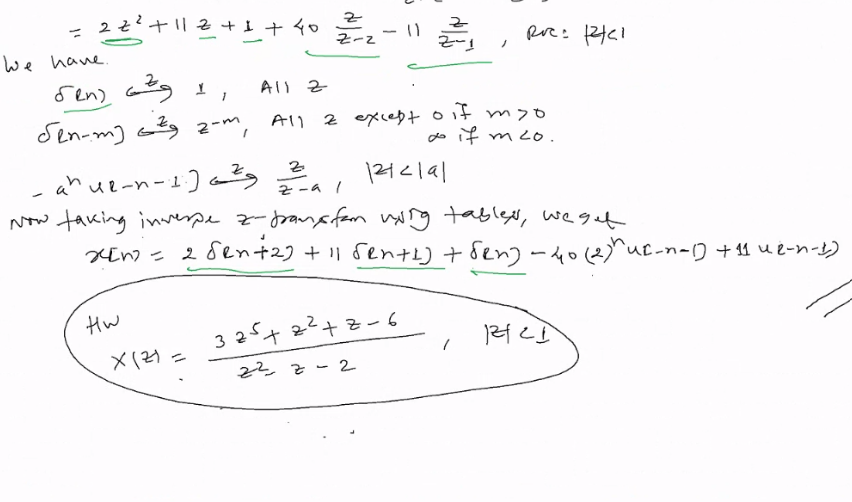 = 2z² + 11z + 1 + 40 z/(z-2) - 11 z/(z-1) , ROC: |z|<1
We have.
δ[n] ⟷z 1, All z
δ[n-m] ⟷z z^-m, All z except 0 if m>0
∞ if m<0.
- aⁿ u[-n-1] ⟷z z/(z-a) , |z|<|a|
Now taking inverse z-transform using tables, we get
x[n] = 2 δ[n+2] + 11 δ[n+1] + δ[n] - 40(2)ⁿ u[-n-1] + 11 u[-n-1]
HW
X(z) = (3z⁵ + z² + z - 6)/(z² - z - 2) , |z|<1